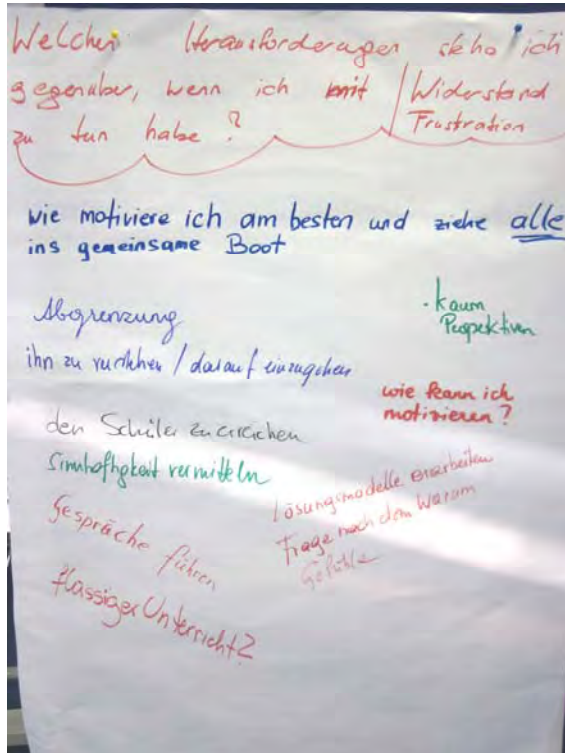 Welchen Herausforderungen stehe ich
gegenüber, wenn ich mit / Widerstand
Frustration
zu tun habe?
wie motiviere ich am besten und ziehe alle
ins gemeinsame Boot
Abgrenzung
· kaum
Perspektiven
ihn zu verstehen / darauf einzugehen
wie kann ich
motivieren?
den Schüler zu erreichen
Sinnhaftigkeit vermitteln
Lösungsmodelle erarbeiten
Frage nach dem Warum
Gefühle
Gespräche führen
flassiger Unterricht?